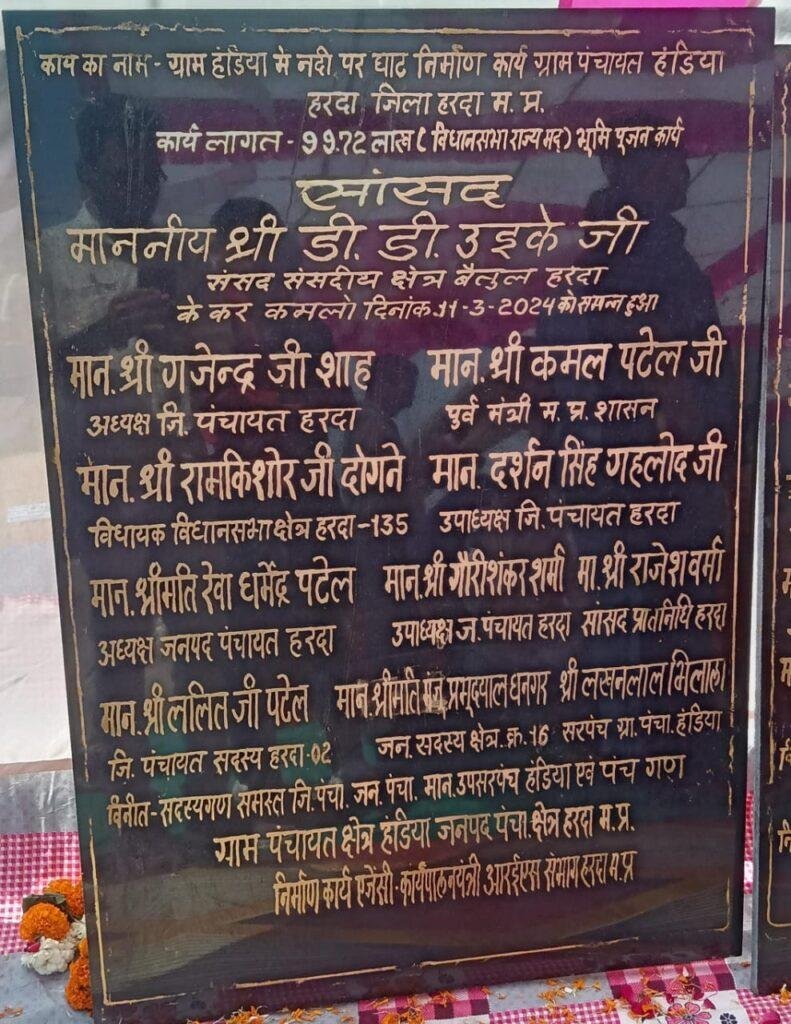 कार्य का नाम - ग्राम हंडिया मे नदी पर घाट निर्माण कार्य ग्राम पंचायत हंडिया
हरदा जिला हरदा म. प्र.
कार्य लागत - 99.72 लाख ( विधानसभा राज्य मद ) भूमि पूजन कार्य
सांसद
माननीय श्री डी. डी. उइके जी
संसद संसदीय क्षेत्र बैतुल हरदा
के कर कमलो दिनांक 11-3-2024 को सम्पन्न हुआ
मान. श्री गजेन्द्र जी शाह मान. श्री कमल पटेल जी
अध्यक्ष जि. पंचायत हरदा पुर्व मंत्री म. प्र. शासन
मान. श्री रामकिशोर जी दोगने मान. दर्शन सिंह गहलोद जी
विधायक विधानसभा क्षेत्र हरदा -135 उपाध्यक्ष जि. पंचायत हरदा
मान. श्रीमति रेवा धर्मेद्र पटेल मान. श्री गौरीशंकर शर्मा मा. श्री राजेश वर्मा
अध्यक्ष जनपद पंचायत हरदा उपाध्यक्ष ज. पंचायत हरदा सांसद प्रतिनिधि हरदा
मान. श्री ललित जी पटेल मान. श्रीमति प्रभूदयाल धनगर श्री लखनलाल भिलाला
जि. पंचायत सदस्य हरदा-02 जन. सदस्य क्षेत्र. क्र. 16 सरपंच ग्रा. पंचा. हंडिया
विनीत - सदस्यगण समस्त जि. पंचा. जन. पंचा. मान. उपसरपंच हंडिया एवं पंच गण
ग्राम पंचायत क्षेत्र हंडिया जनपद पंचा. क्षेत्र हरदा म. प्र.
निर्माण कार्य एजेंसी - कार्यपालनयंत्री आरईएस संभाग हरदा म. प्र